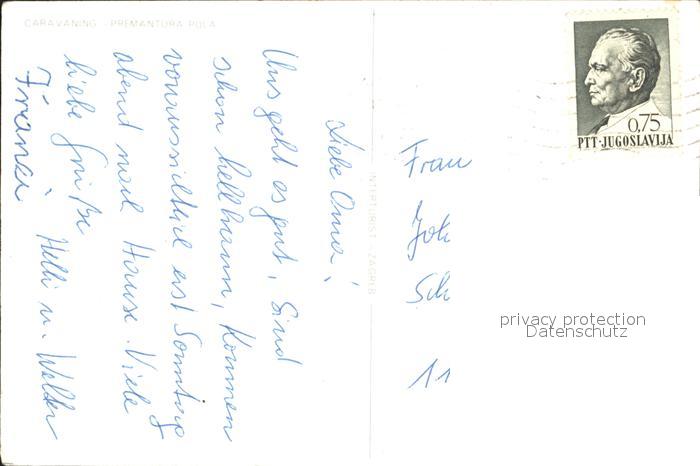 CARAVANING - PREMANTURA PULA
Liebe Oma!
Uns geht es gut, Sind
schon hellbraun, kommen
voraussichtlich erst Sonntag
abend nach Hause. Viele
liebe Grüße Helli u. Walter
Franci
INTERTURIST - ZAGREB
Frau
Joh
Sch
11
0,75
PTT·JUGOSLAVIJA
privacy protection
Datenschutz